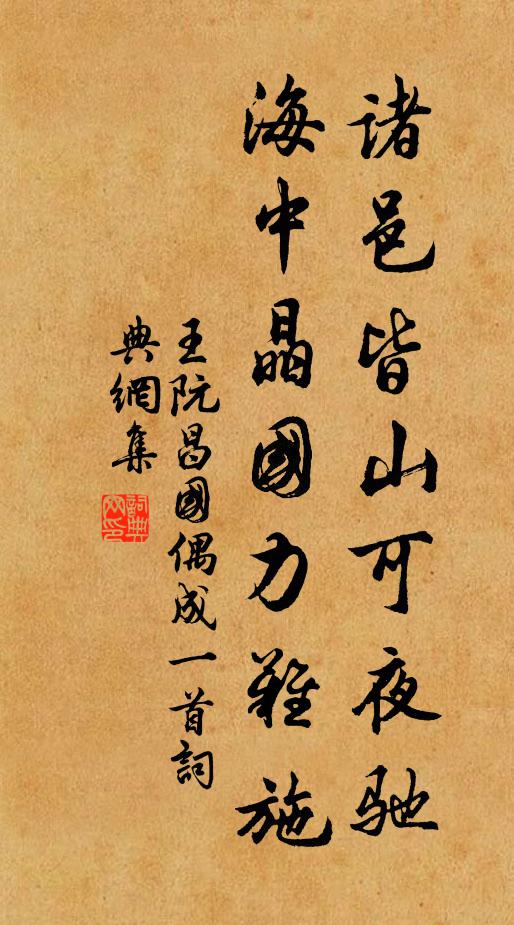 諸邑皆山可夜驰
海中晶國力難施
王阮昌國偶成一首詞
典網集
詞典網印